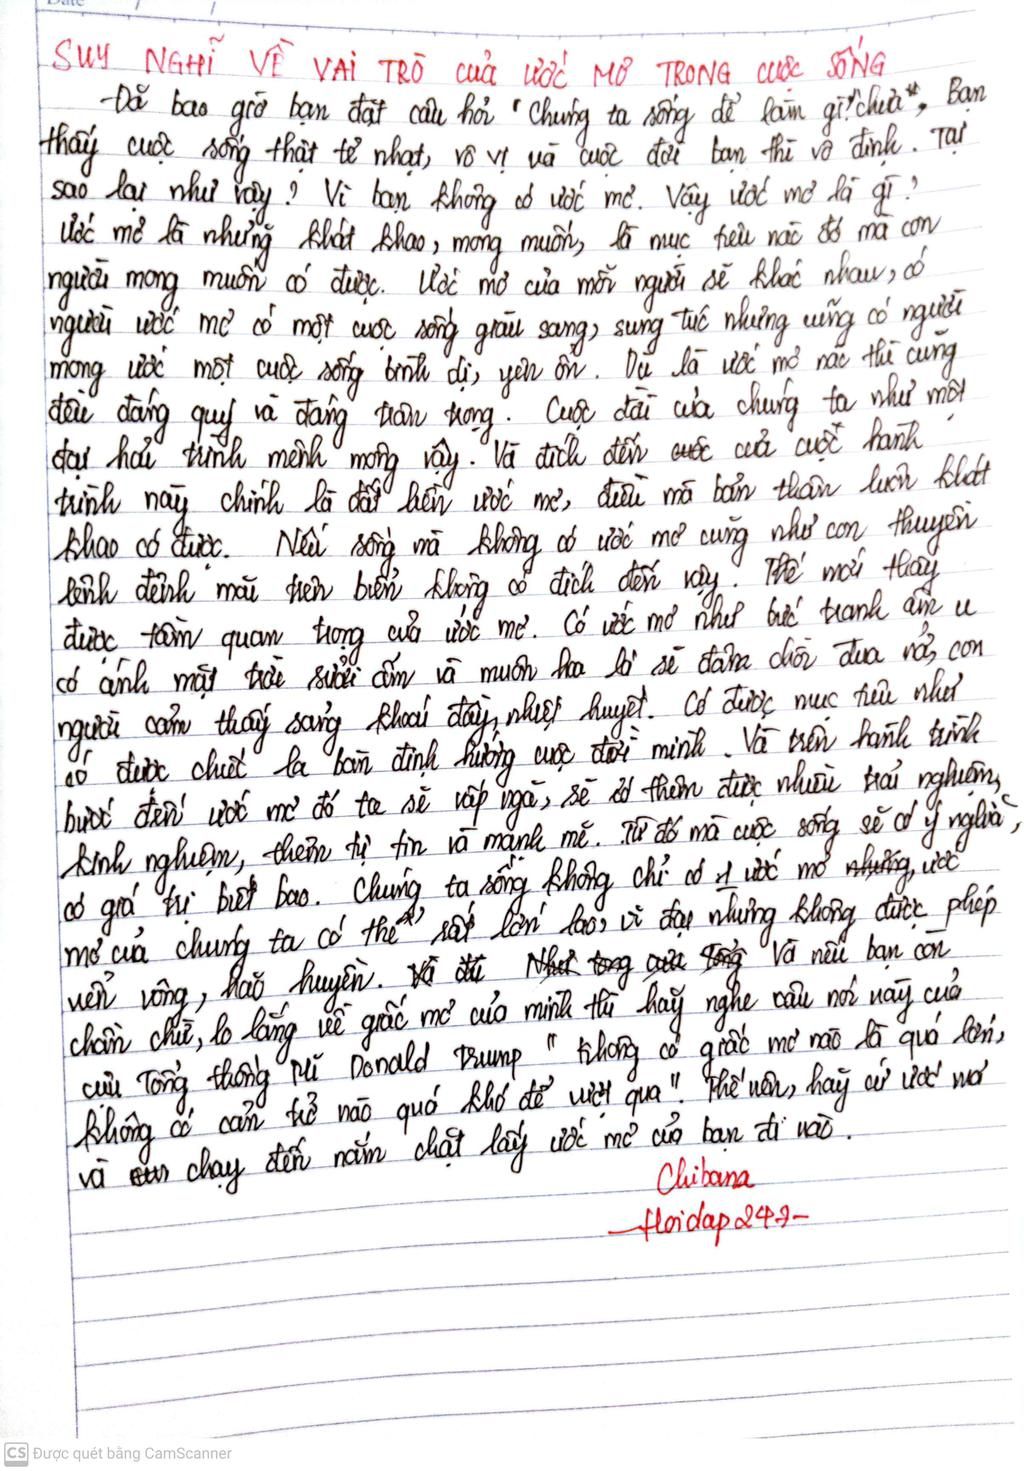 Date / /
SUY NGHĨ VỀ VAI TRÒ CỦA ƯỚC MƠ TRONG CUỘC SỐNG
Đã bao giờ bạn đặt câu hỏi "Chúng ta sống để làm gì?" chưa", Bạn
thấy cuộc sống thật tẻ nhạt, vô vị và cuộc đời bạn thì vô định. Tại
sao lại như vậy? Vì bạn không có ước mơ. Vậy ước mơ là gì?
Ước mơ là những khát khao, mong muốn, là mục tiêu nào đó mà con
người mong muốn có được. Ước mơ của mỗi người sẽ khác nhau, có
người ước mơ có một cuộc sống giàu sang, sung túc nhưng cũng có người
mong ước một cuộc sống bình dị, yên ổn. Dù là ước mơ nào thì cũng
đều đáng quý và đáng trân trọng. Cuộc đời của chúng ta như một
đại hải trình mênh mông vậy. Và đích đến cuộc của cuộc hành
trình này chính là đất liền ước mơ, điều mà bản thân luôn khát
khao có được. Nếu sống mà không có ước mơ cũng như con thuyền
lênh đênh mãi trên biển không có đích đến vậy. Thế mới thấy
được tầm quan trọng của ước mơ. Có ước mơ như bức tranh ấm u
có ánh mặt trời sưởi ấm và muôn hoa lá sẽ đâm chồi đua nở, con
người cảm thấy sảng khoái đầy, nhiệt huyết. Có được mục tiêu như
có được chiếc la bàn định hướng cuộc đời mình. Và trên hành trình
bước đến ước mơ đó ta sẽ vấp ngã, sẽ có thêm được nhiều trải nghiệm,
kinh nghiệm, thêm tự tin và mạnh mẽ. Từ đó mà cuộc sống sẽ có ý nghĩa,
có giá trị biết bao. Chúng ta sống không chỉ có 1 ước mơ nhưng, ước
mơ của chúng ta có thể rất lớn lao, vĩ đại nhưng không được phép
viển vông, hão huyền. Và Như trong của Tổng Và nếu bạn còn
chần chừ, lo lắng về giấc mơ của mình thì hãy nghe câu nói này của
cựu Tổng thống Mĩ Donald Trump "Không có giấc mơ nào là quá lớn,
không có cản trở nào quá khó để vượt qua". Thế nên, hãy cứ ước mơ
và chạy đến nắm chặt lấy ước mơ của bạn đi nào.
Chibana
-Hoidap247-
CS Được quét bằng CamScanner